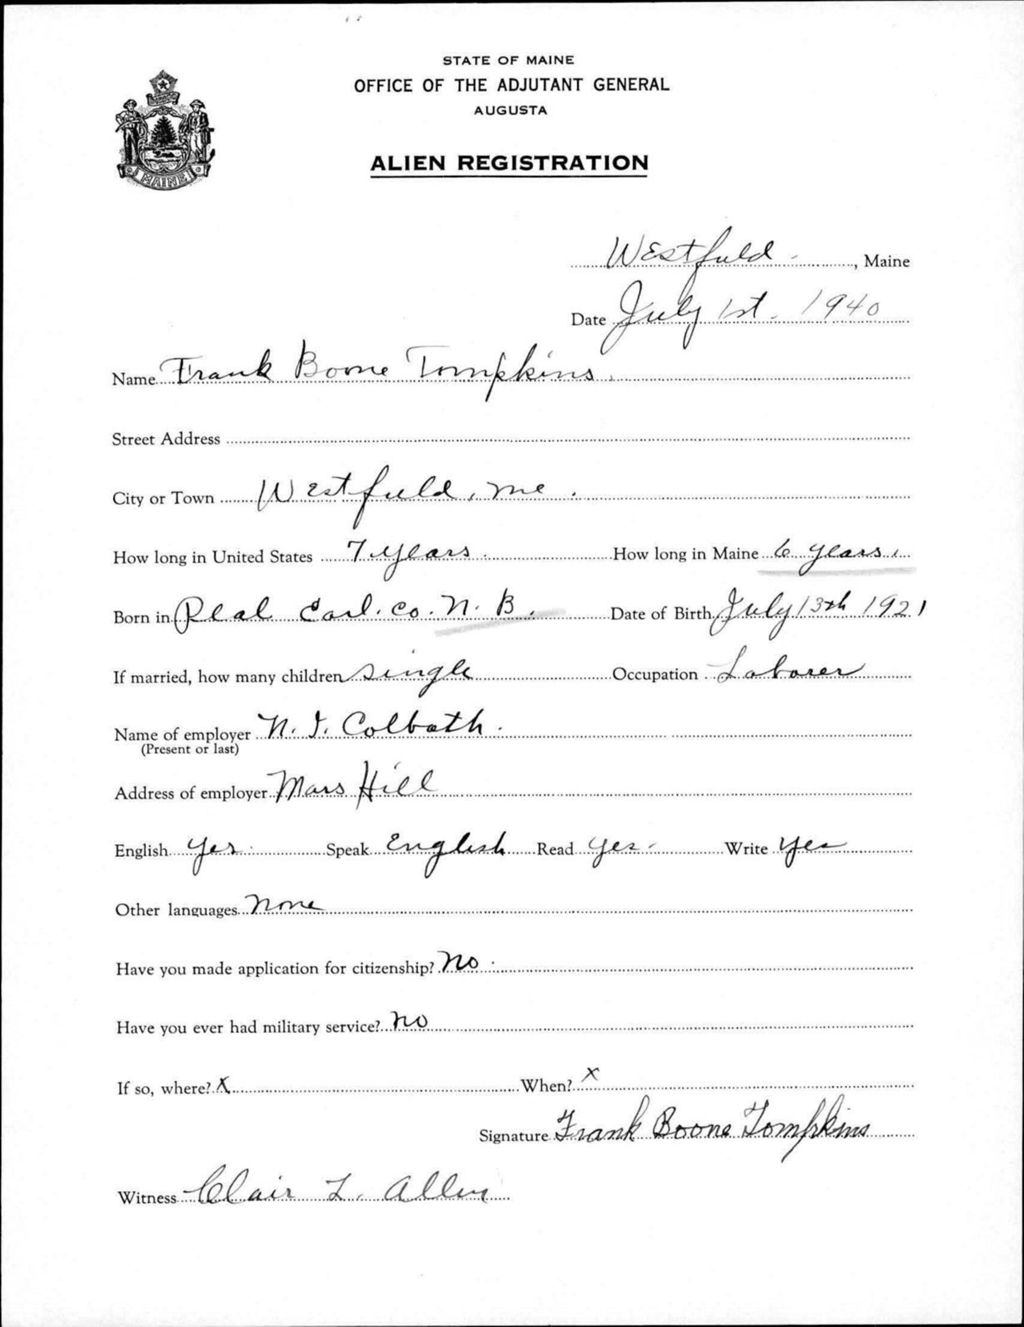 STATE OF MAINE
OFFICE OF THE ADJUTANT GENERAL
AUGUSTA
ALIEN REGISTRATION
MAINE
Westfield, Maine
Date July 1st. 1940
Name Frank Boone Tompkins.
Street Address
City or Town Westfield, Me.
How long in United States 7 years. How long in Maine 6 years.
Born in Peal Carl. Co. N. B. Date of Birth July 13th 1921
If married, how many children Single Occupation Laborer
Name of employer N. I. Colbath.
(Present or last)
Address of employer Mars Hill
English Yes Speak English Read Yes Write Yes
Other languages None
Have you made application for citizenship? No
Have you ever had military service? No
If so, where? X When? X
Signature Frank Boone Tompkins
Witness Clair L. Allen